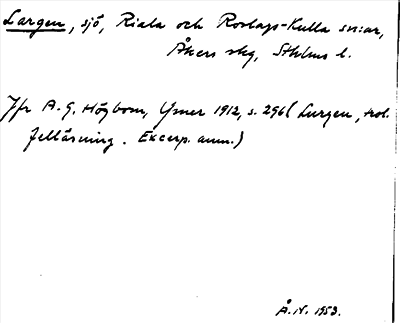 Largen, sjö, Riala och Roslags-Kulla sn:ar,
Åkers skg, Sthlms l.
Jfr A. G. Högbom, Ymer 1912, s. 296 (Lurgen, trol.
felläsning. Excerp. anm.)
Å. N. 1953.